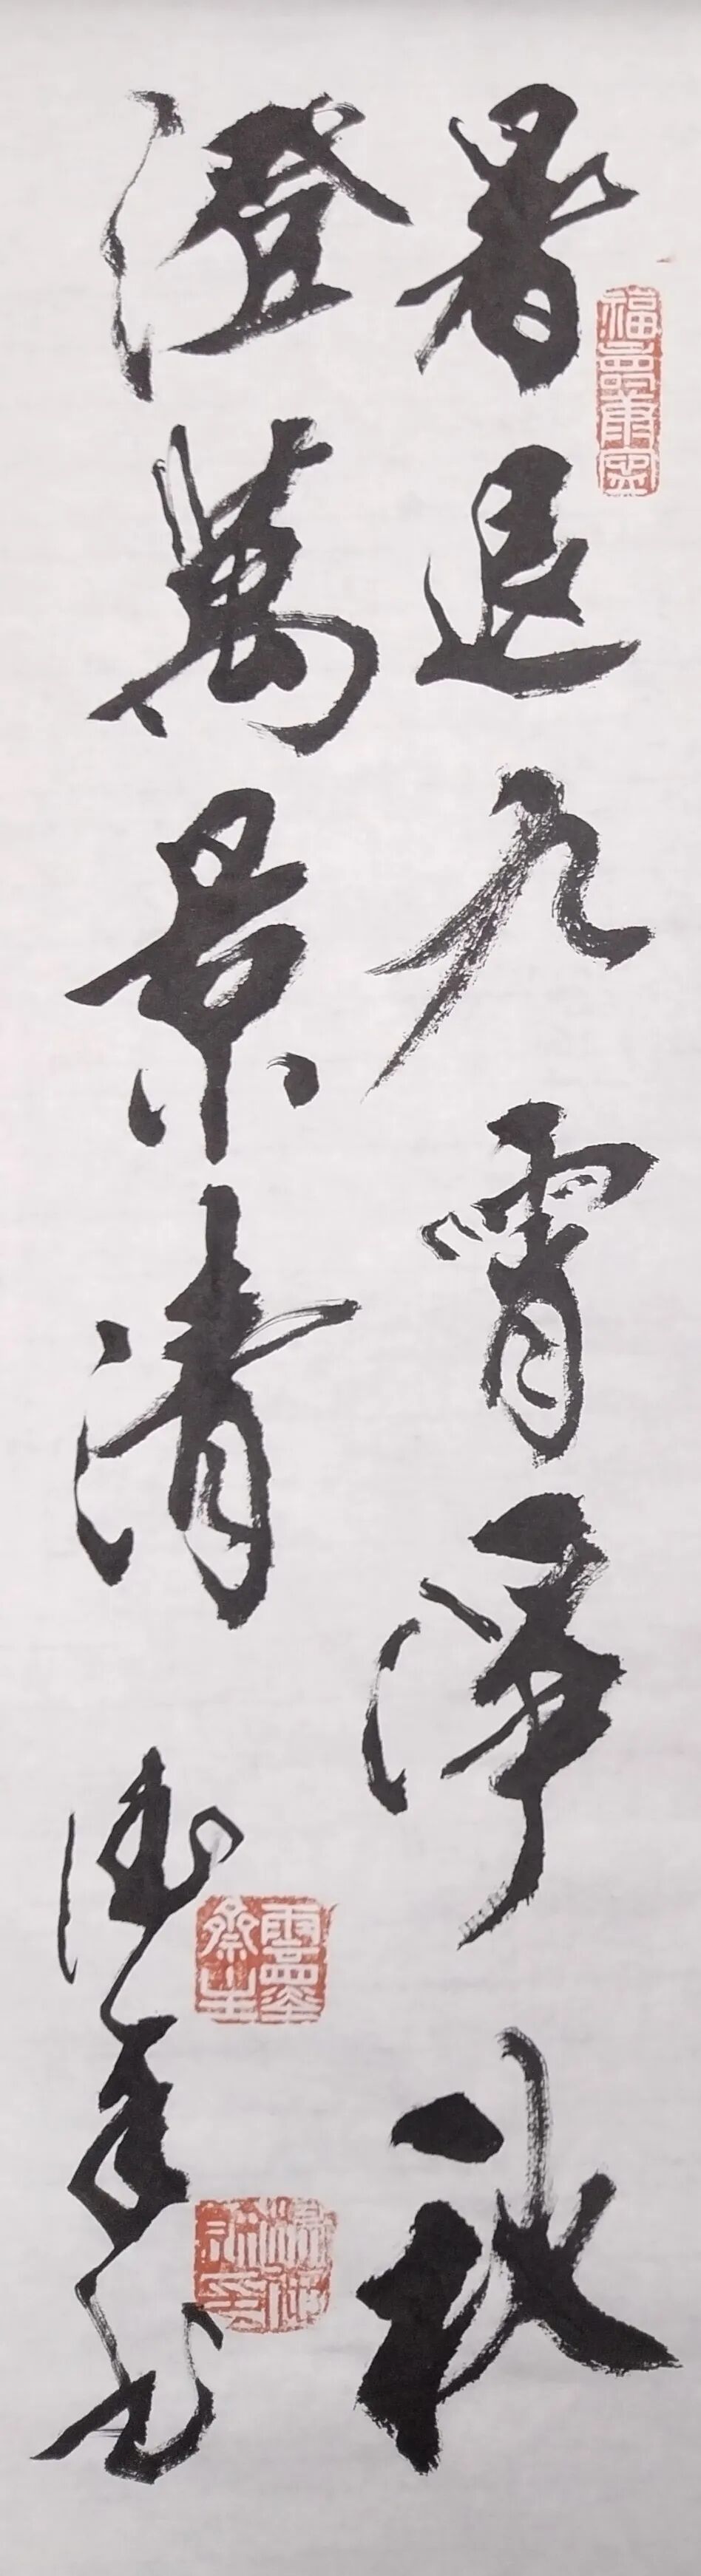 暑退九霄淨秋
澄萬景清
福壽康寧